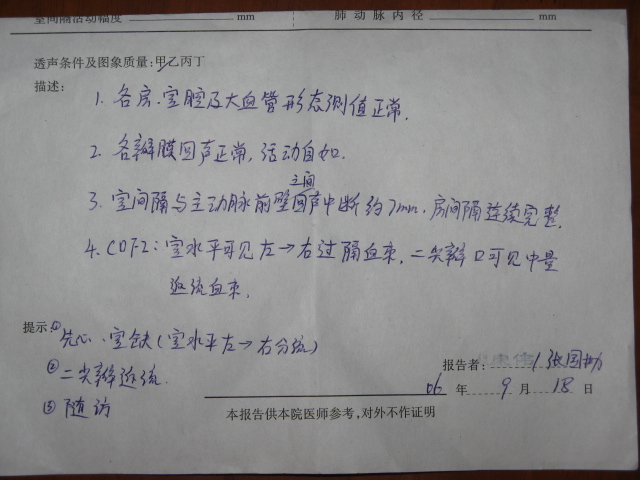 室间隔活动幅度 mm 肺动脉内径 mm
透声条件及图象质量:甲乙丙丁
描述:
1. 各房.室腔及大血管形态测值正常.
2. 各瓣膜回声正常,活动自如.
之间
3. 室间隔与主动脉前壁回声中断约7mm.房间隔连续完整.
4. CDFI:室水平可见左→右过隔血束,二尖瓣口可见中量
返流血束.
提示:① 先心.室缺(室水平左→右分流)
② 二尖瓣返流.
③ 随访
报告者: 张国
06 年 9 月 18 日
本报告供本院医师参考,对外不作证明